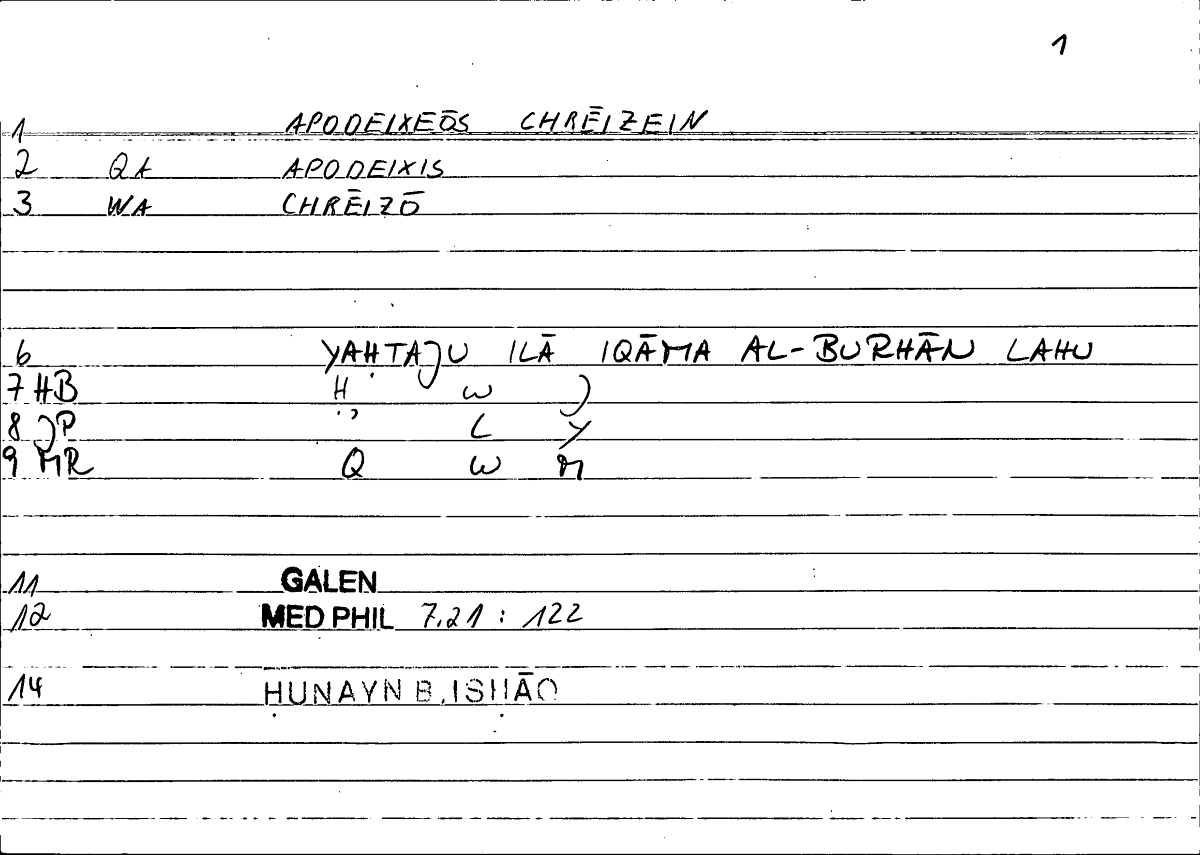 1
1 APODEIXEŌS CHRĒIZEIN
2 QA APODEIXIS
3 WA CHRĒIZŌ
6 YAḤTAJU ILĀ IQĀMA AL-BURHĀN LAHU
7 HB Ḥ W J
8 JP ' L Y
9 MR Q W M
11 GALEN
12 MED PHIL 7.21 : 122
14 ḤUNAYN B. ISḤĀQ